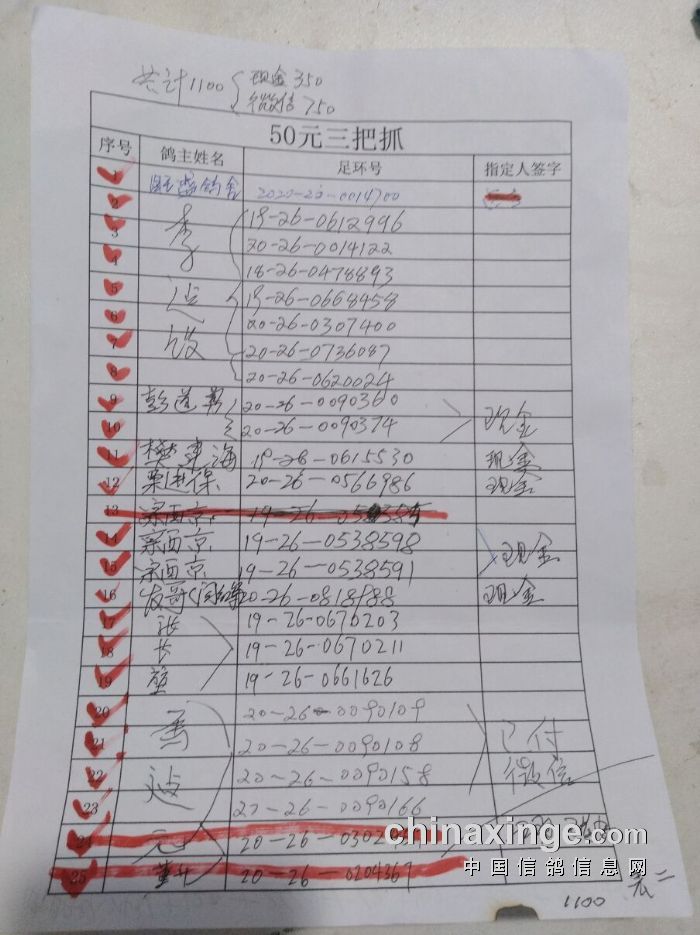 共计1100 { 现金350
微信750
50元三把抓
序号 鸽主姓名 足环号 指定人签字
1
2 鸽舍 2020-26-0014700
3 19-26-0612996
4 20-26-0014122
18-26-0478893
5 19-26-0668458
6 20-26-0307400
7 20-26-0736087
8 20-26-0620024
9 20-26-0090360
10 20-26-0090374 现金
11 樊东海 19-26-0615530 现金
12 栗进保 20-26-0566986 现金
13 宗西京 19-26-
14 宗西京 19-26-0538598
15 宗西京 19-26-0538591 现金
16 友哥 20-26-0818188 现金
17 张 19-26-0670203
18 长 19-26-0670211
19 19-26-0661626
20 20-26-0090109
21 20-26-0090108 已付
22 20-26-0090158 微信
23 20-26-0090166
24 20-26-0302
25 20-26-0204367
chinaxinge.com
中国信鸽信息网
1100 表二